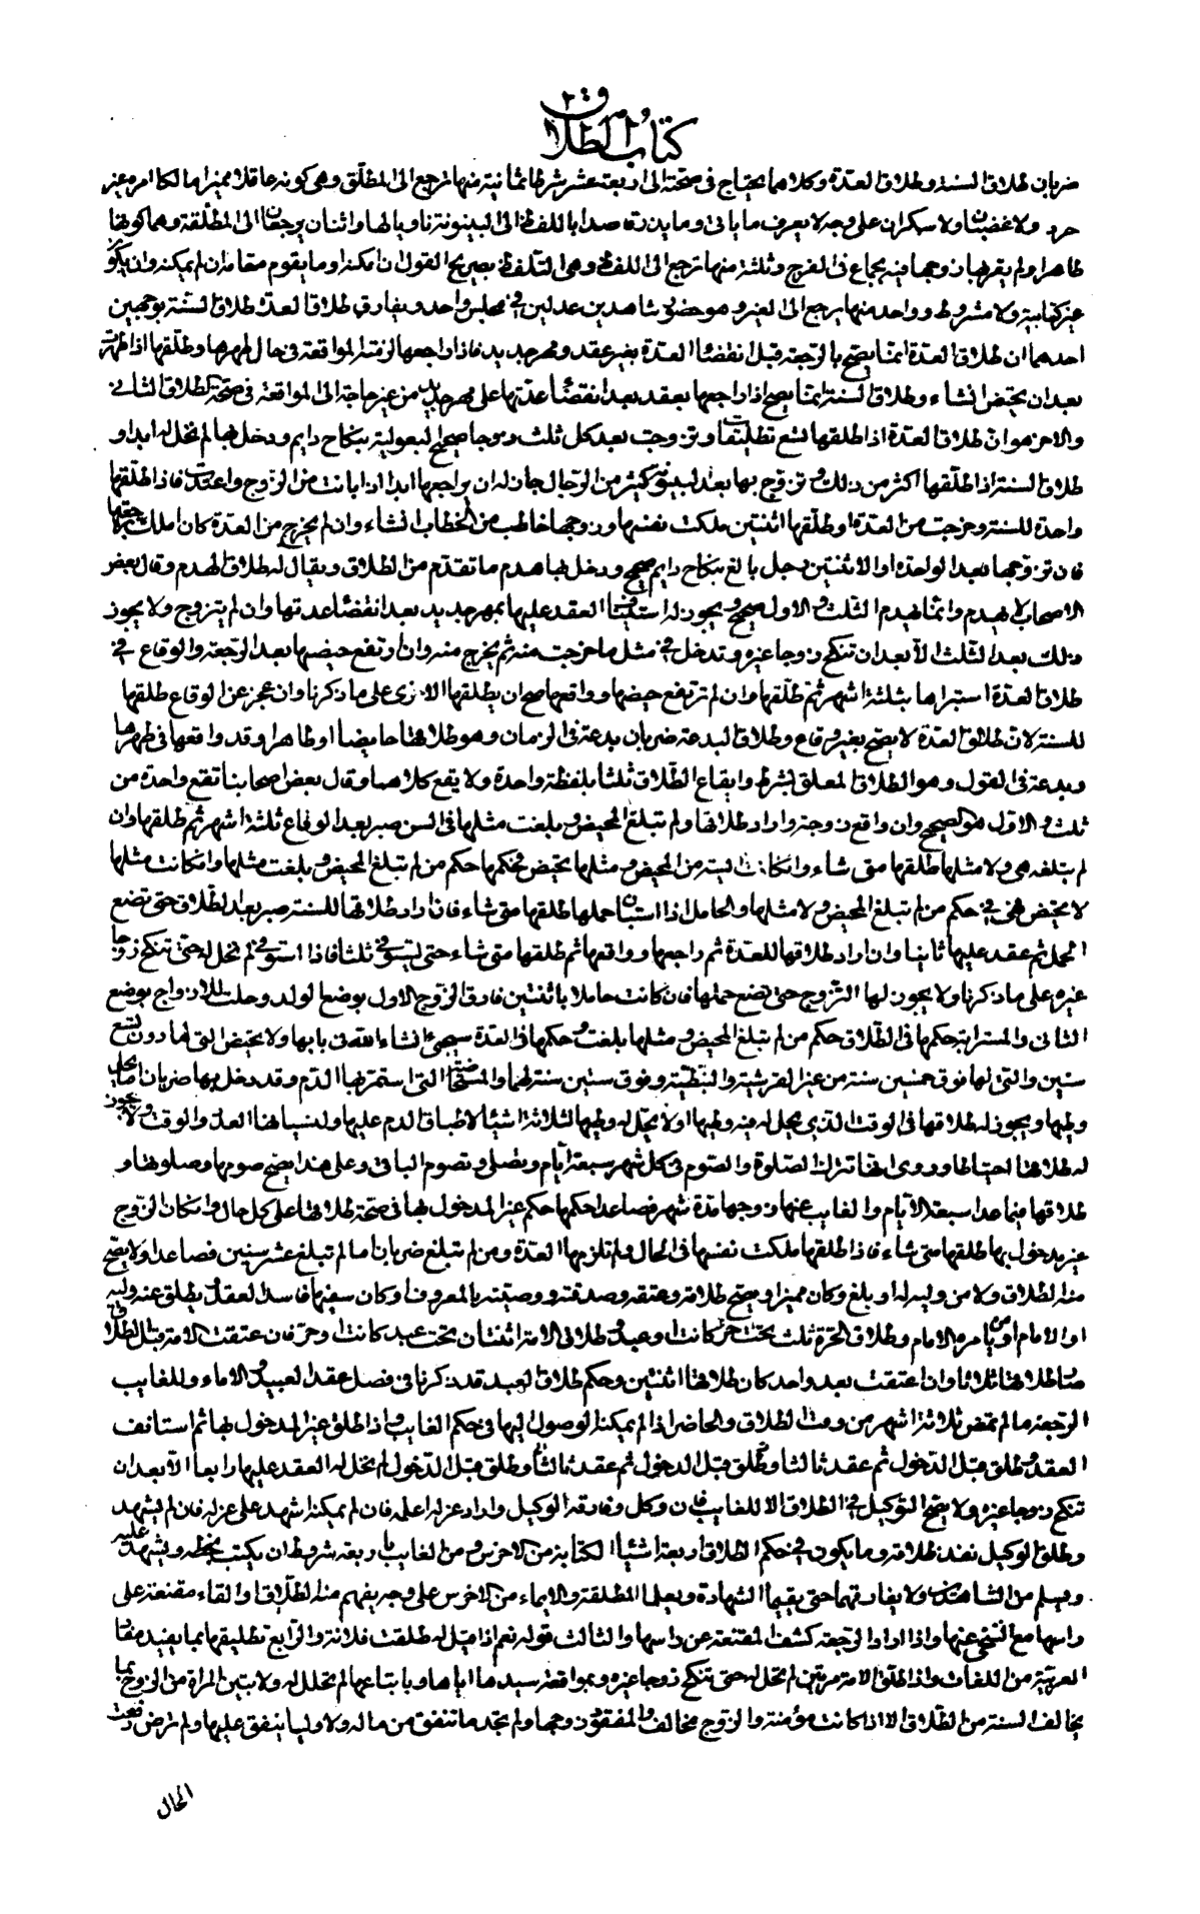 كتاب الطلاق
ضربان طلاق السنة وطلاق العدة وكلاهما يحتاج في صحته الى اربعة عشر شرطا ثمانية منها ترجع الى المطلق وهي كونه عاقلا مميزا مالكا امره غير
حرد ولا غضبان ولا سكران على وجه لا يعرف ما ياتي وما يذر قاصدا باللفظ الى البينونة ناويا لها واثنان يرجعان الى المطلقة وهما كونها
طاهرا ولم يقربها زوجها فيه بجماع في الفرج وثلثة منها ترجع الى اللفظ وهي التلفظ بصريح القول ان امكنه او ما يقوم مقامه ان لم يمكنه وان يكون
غير كناية ولا مشروط وواحد منها يرجع الى الغير وهو حضور شاهدين عدلين في مجلس واحد ويفارق طلاق العدة طلاق السنة بوجهين
احدهما ان طلاق العدة انما يصح بالرجعة قبل انقضاء العدة بغير عقد ومهر جديد فاذا راجعها لزمته المواقعة في حال طهرها وطلقها اذا طهرت
بعد ان تحيض ان شاء وطلاق السنة انما يصح اذا راجعها بعقد بعد انقضاء عدتها على مهر جديد من غير حاجة الى المواقعة في صحة الطلاق الثاني
والاخر هو ان طلاق العدة اذا طلقها تسع تطليقات وتزوجت بعد كل ثلث زوجا صحيح البعولية بنكاح دايم ودخل بها لم تحل له ابدا و
طلاق السنة اذا طلقها اكثر من ذلك وتزوج بها بعد البينونة كثير من الرجال جاز له ان يراجعها ابدا اذا بانت من الزوج واعتدت فاذا طلقها
واحدة للسنة وخرجت من العدة او طلقها اثنتين ملكت نفسها وزوجها خاطب من الخطاب ان شاء وان لم يخرج من العدة كان املك برجعتها
فان تزوجها بعد الواحدة او الاثنتين رجل بالغ بنكاح دايم صحيح ودخل بها هدم ما تقدم من الطلاق ويقال له طلاق الهدم وقال بعض
الاصحاب لا يهدم وانما يهدم الثلث والاول صحيح ويجوز له استيناف العقد عليها بمهر جديد بعد انقضاء عدتها وان لم يتزوج ولا يجوز
ذلك بعد الثلث الا بعد ان تنكح زوجا غيره وتدخل في مثل ما خرجت منه ثم يخرج منه وان ارتفع حيضها بعد الرجعة والوقاع في
طلاق العدة استبراها بثلثة اشهر ثم طلقها وان لم ترتفع حيضها وواقعها صح ان يطلقها الاخرى على ما ذكرنا وان عجز عن الوقاع طلقها
للسنة لان طلاق العدة لا يصح بغير وقاع وطلاق البدعة ضربان بدعة في الزمان وهو طلاقها حايضا او طاهرا وقد واقعها في طهرها
وبدعة في القول وهو الطلاق المعلق بشرط وايقاع الطلاق ثلثا بلفظة واحدة ولا يقع كلاهما وقال بعض اصحابنا تقع واحدة من
ثلث والاول هو الصحيح وان واقع زوجة واراد طلاقها ولم تبلغ المحيض وبلغت مثلها في السن صبر بعد الوقاع ثلثة اشهر ثم طلقها وان
لم يبلغه هي ولا مثلها طلقها متى شاء وان كانت ايسة من المحيض ومثلها تحيض فحكمها حكم من لم تبلغ المحيض وبلغت مثلها وان كانت مثلها
لا تحيض فهي في حكم من لم تبلغ المحيض ولا مثلها والحامل اذا استبان حملها طلقها متى شاء فان اراد طلاقها للسنة صبر بعد الطلاق حتى تضع
الحمل ثم عقد عليها ثانيا وان اراد طلاقها للعدة ثم راجعها وواقعها ثم طلقها متى شاء حتى يستوفي ثلثا فاذا استوفى لم تحل له حتى تنكح زوجا
غيره على ما ذكرنا ولا يجوز لها التزوج حتى تضع حملها فان كانت حاملا باثنتين فارق الزوج الاول بوضع الولد وحلت للازواج بوضع
الثاني والمسترابة حكمها في الطلاق حكم من لم تبلغ المحيض ومثلها بلغت وحكمها في العدة سيجيء ان شاء الله في بابها ولا تحيض التي لها دون تسع
سنين والتي لها فوق خمسين سنة من غير القرشية والنبطية وفوق ستين سنة لهما والمستحاضة التي استمر بها الدم وقد دخل بها ضربان اما يحل
وطيها ويجوز له طلاقها في الوقت الذي يحل له فيه وطيها او لا يحل له وطيها لثلاثة اشياء لاطباق الدم عليها ولنسيانها العدد والوقت ولا يجوز
له طلاقها احتياطا وروى انها تترك الصلوة والصوم في كل شهر سبعة ايام وتصلي وتصوم الباقي وعلى هذا يصح صومها وصلوتها و
طلاقها فيما عدا سبعة الايام والغايب عنها زوجها مدة شهر فصاعدا حكمها حكم غير المدخول بها في صحة طلاقها على كل حال وان كان الزوج
غير مدخول بها طلقها متى شاء فاذا طلقها ملكت نفسها في الحال ولم تلزمها العدة ومن لم تبلغ ضربان اما لم تبلغ عشر سنين فصاعدا ولا يصح
منه الطلاق ولا من وليه له او بلغ وكان مميزا ويصح طلاقه وعتقه وصدقته ووصيته بالمعروف او كان سفيها فاسد العقل يطلق عنه وليه
او الامام او من يامره الامام وطلاق الحرة ثلث تحت حر كانت او عبد وطلاق الامة اثنتان تحت عبد كانت او حر فان عتقت الامة قبل الطلاق
صار طلاقها ثلاثا وان اعتقت بعد واحد كان طلاقها اثنتين وحكم طلاق العبد قد ذكرنا في فصل عقد العبيد والاماء وللغايب
الرجعة ما لم تمض ثلاثة اشهر من وقت الطلاق والحاضر اذا لم يمكنه الوصول اليها في حكم الغايب واذا طلق غير المدخول بها ثم استانف
العقد وطلق قبل الدخول ثم عقد ثالثا وطلق قبل الدخول ثم عقد ثالثا وطلق قبل الدخول لم تحل له العقد عليها رابعا الا بعد ان
تنكح زوجا غيره ولا يصح التوكيل في الطلاق الا للغايب فان وكل وفارقه الوكيل واراد عزله اعلمه فان لم يمكنه اشهد على عزله فان لم يشهد
وطلق الوكيل نفذ طلاقه وما يكون في حكم الطلاق اربعة اشياء الكتابة من الاخرس ومن الغايب باربعة شروط ان يكتب بخطه ويشهد عليه
ويسلم من الشاهدين ولا يفارقهما حتى يقيما الشهادة ويعلما المطلقة والايماء من الاخرس على وجه يفهم منه الطلاق والقاء مقنعة على
راسها مع التنحي عنها واذا اراد الرجعة كشف المقنعة عن راسها والثالث قوله نعم اذا قيل له طلقت فلانة والرابع تطليقها بما يفيد مفاد
العربية من اللغات واذا طلق الامة مرتين لم تحل له حتى تنكح زوجا غيره وبمواقعة سيدها اياها وبابتياعها لم تحلل له ولا تبين المراة من الزوج بما
يخالف السنة من الطلاق الا اذا كانت مؤمنة والزوج مخالف والمفقود زوجها ولم يجد ما تنفق من ماله ولا وليا ينفق عليها ولم ترض رفعت
الحال